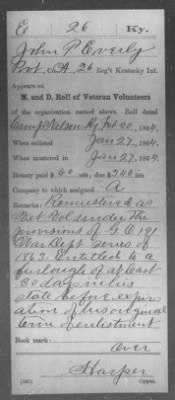 E 26 Ky.
John P. Everly
Pvt. Co. A 26 Reg't Kentucky Inf.
Appears on
M. and D. Roll of Veteran Volunteers
of the organization named above. Roll dated
Camp Nelson Ky Feb 20, 1864.
When enlisted Jan 27, 1864.
When mustered in Jan 27, 1864.
Bounty paid $ 60 cts; due $ 340 cts
Company to which assigned A
Remarks: Remustered as
Vet Vol under the
provisions of G.O. 191
War Dept series of
1863. Entitled to a
furlough of at least
30 days in his
state before expir
ation of his original
term of enlistment
Book mark:
Over
Harper
Copyist.